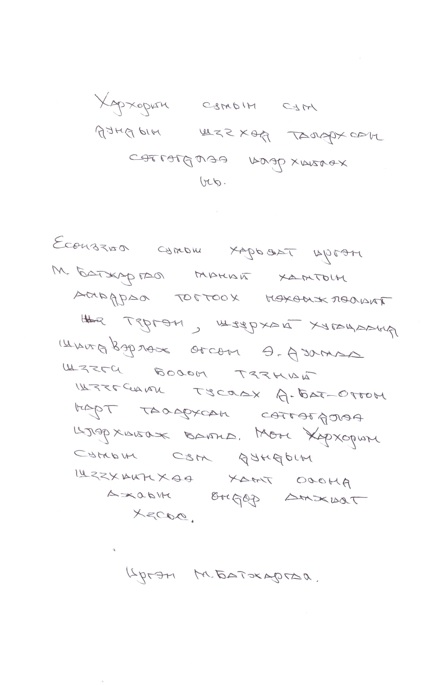 Хархорин сумын сум
дундын шүүхэд талархсан
сэтгэгдлээ илэрхийлэх
нь.
Есөнзүйл сумын харьяат иргэн
М. Батжаргал миний хамтын
амьдрал тогтоох нэхэмжлэлийг
түргэн, шуурхай хугацаанд
шийдвэрлэж өгсөн Э. Дэлмаа
шүүгч болон түүний
шүүгчийн туслах Д. Бат-Отгон
нарт талархсан сэтгэгдлээ
илэрхийлж байна. Мөн Хархорин
сумын сум дундын
шүүхийнхээ хамт олонд
ажлын өндөр амжилт
хүсье.
Иргэн М. Батжаргал.